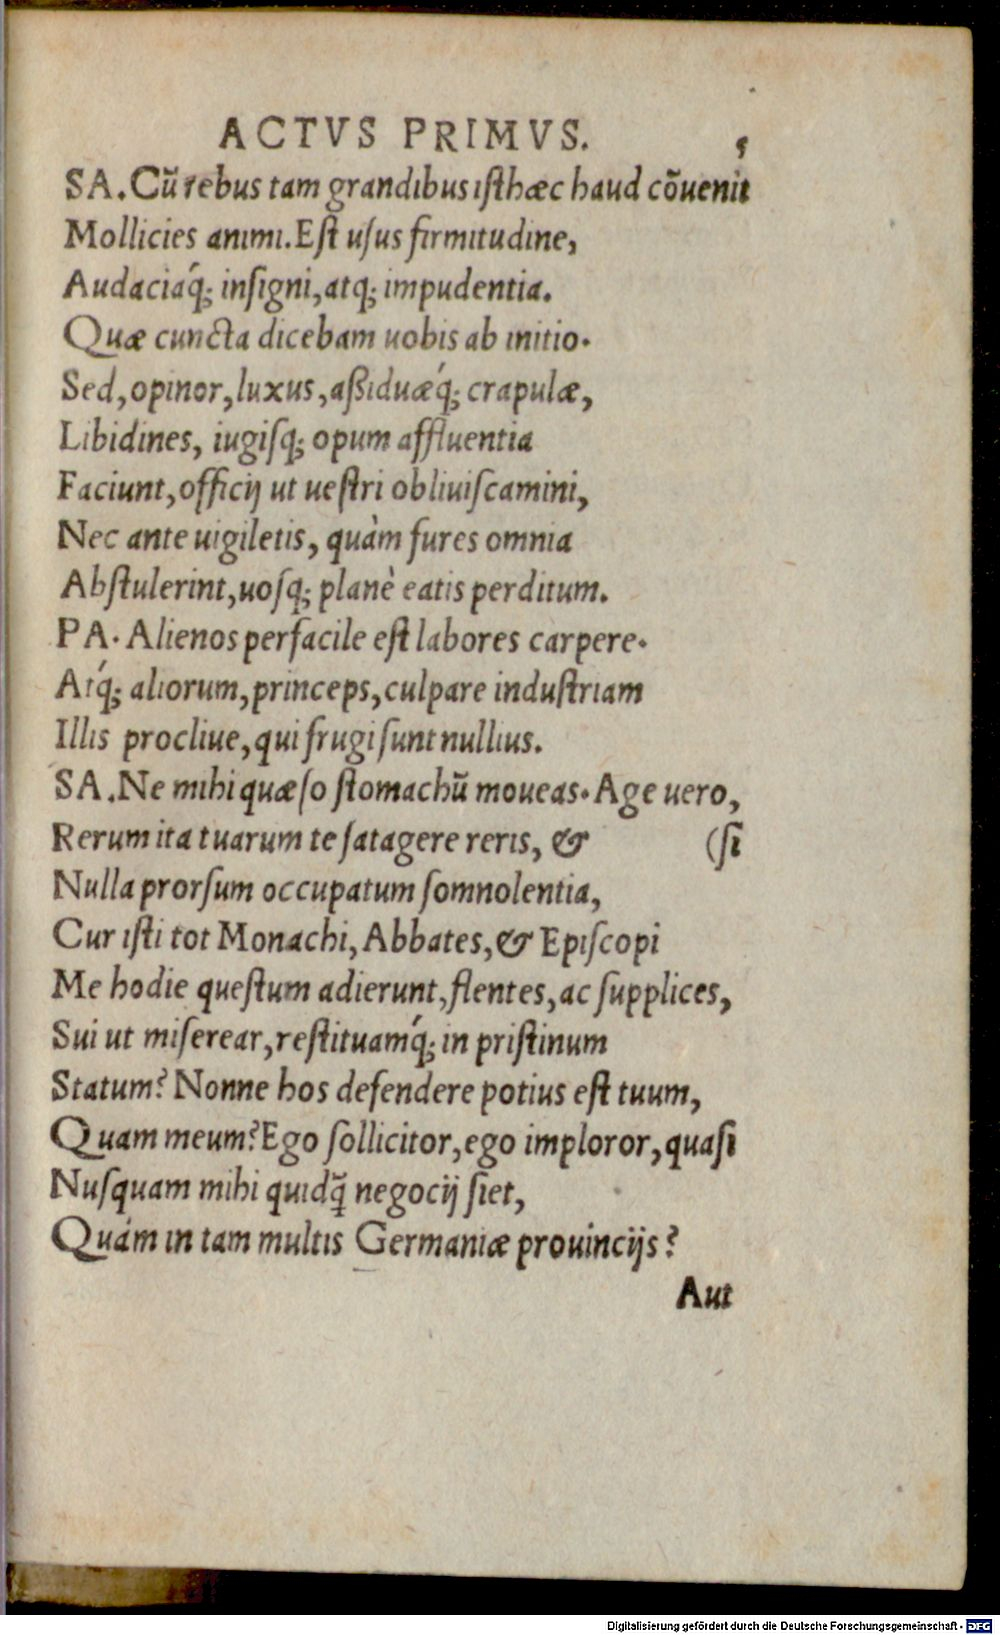 ACTVS PRIMVS. 5
SA. Cũ rebus tam grandibus isthæc haud cõuenit
Mollicies animi. Est usus firmitudine,
Audaciaq́; insigni, atq; impudentia.
Quæ cuncta dicebam uobis ab initio.
Sed, opinor, luxus, aßiduæq́; crapulæ,
Libidines, iugisq; opum affluentia
Faciunt, officij ut uestri obliuiscamini,
Nec ante uigiletis, quàm fures omnia
Abstulerint, uosq; planè eatis perditum.
PA. Alienos perfacile est labores carpere.
Atq́; aliorum, princeps, culpare industriam
Illis procliue, qui frugi sunt nullius.
SA. Ne mihi quæso stomachũ moueas. Age uero,
Rerum ita tuarum te satagere reris, & (si
Nulla prorsum occupatum somnolentia,
Cur isti tot Monachi, Abbates, & Episcopi
Me hodie questum adierunt, flentes, ac supplices,
Sui ut miserear, restituamq́; in pristinum
Statum? Nonne hos defendere potius est tuum,
Quam meum? Ego sollicitor, ego imploror, quasi
Nusquam mihi quidq̃ negocij siet,
Quàm in tam multis Germaniæ prouincijs?
Aut
Digitalisierung gefördert durch die Deutsche Forschungsgemeinschaft - DFG